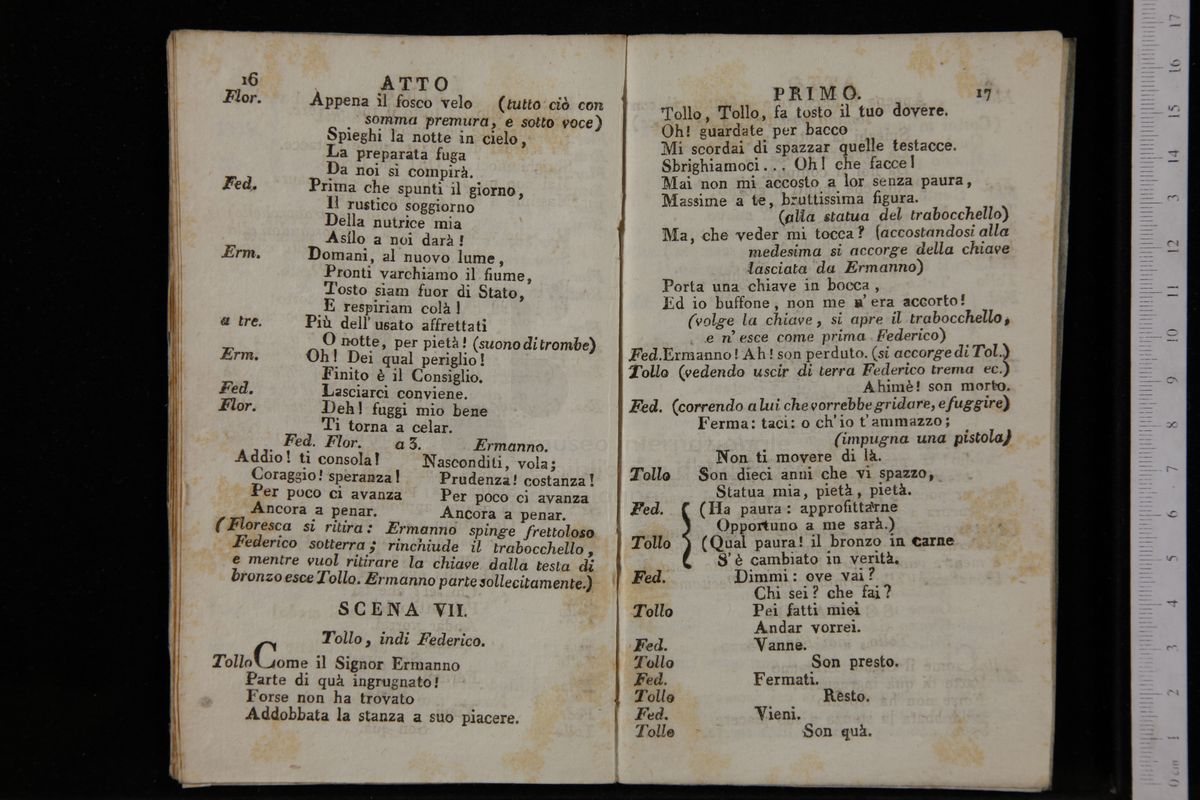 16
ATTO
Flor. Appena il fosco velo (tutto ciò con
somma premura, e sotto voce)
Spieghi la notte in cielo,
La preparata fuga
Da noi si compirà.
Fed. Prima che spunti il giorno,
Il rustico soggiorno
Della nutrice mia
Asilo a noi darà!
Erm. Domani, al nuovo lume,
Pronti varchiamo il fiume,
Tosto siam fuor di Stato,
E respiriam colà!
a tre. Più dell'usato affrettati
O notte, per pietà! (suono di trombe)
Erm. Oh! Dei qual periglio!
Finito è il Consiglio.
Fed. Lasciarci conviene.
Flor. Deh! fuggi mio bene
Ti torna a celar.
Fed. Flor. a 3. Ermanno.
Addio! ti consola! Nasconditi, vola;
Coraggio! speranza! Prudenza! costanza!
Per poco ci avanza Per poco ci avanza
Ancora a penar. Ancora a penar.
(Floresca si ritira: Ermanno spinge frettoloso
Federico sotterra; rinchiude il trabocchello,
e mentre vuol ritirare la chiave dalla testa di
bronzo esce Tollo. Ermanno parte sollecitamente.)
SCENA VII.
Tollo, indi Federico.
Tollo Come il Signor Ermanno
Parte di quà ingrugnato!
Forse non ha trovato
Addobbata la stanza a suo piacere.
PRIMO. 17
Tollo, Tollo, fa tosto il tuo dovere.
Oh! guardate per bacco
Mi scordai di spazzar quelle testacce.
Sbrighiamoci... Oh! che facce!
Mai non mi accosto a lor senza paura,
Massime a te, bruttissima figura.
(alla statua del trabocchello)
Ma, che veder mi tocca? (accostandosi alla
medesima si accorge della chiave
lasciata da Ermanno)
Porta una chiave in bocca,
Ed io buffone, non me n'era accorto!
(volge la chiave, si apre il trabocchello,
e n'esce come prima Federico)
Fed. Ermanno! Ah! son perduto. (si accorge di Tol.)
Tollo (vedendo uscir di terra Federico trema ec.)
Ahimè! son morto.
Fed. (correndo a lui che vorrebbe gridare, e fuggire)
Ferma: taci: o ch'io t'ammazzo;
(impugna una pistola)
Non ti movere di là.
Tollo Son dieci anni che vi spazzo,
Statua mia, pietà, pietà.
Fed. (Ha paura: approfittarne
Opportuno a me sarà.)
Tollo (Qual paura! il bronzo in carne
S'è cambiato in verità.
Fed. Dimmi: ove vai?
Chi sei? che fai?
Tollo Pei fatti miei
Andar vorrei.
Fed. Vanne.
Tollo Son presto.
Fed. Fermati.
Tollo Resto.
Fed. Vieni.
Tollo Son quà.